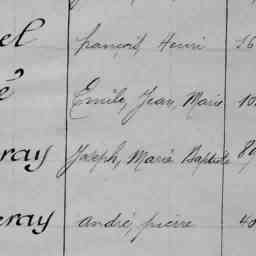 el françois, Henri 56
é Emile, Jean, Marie 10
ray Joseph, Marie Baptiste 80
eray andré, pierre 40